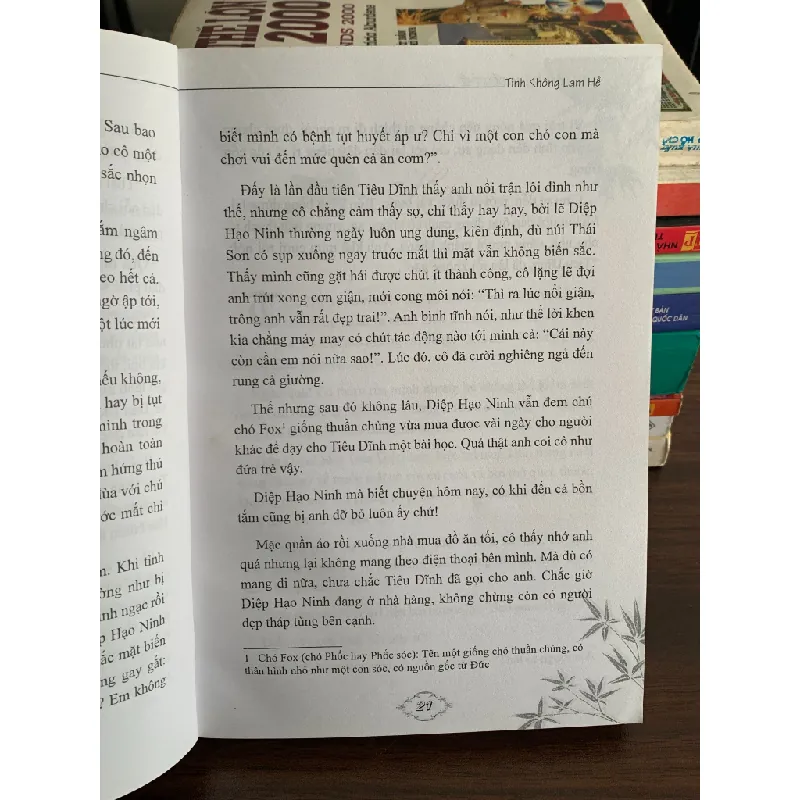 THẾ LỚN
2000
NDS 2000
Sau bao
o cô một
sắc nhọn
ắm ngâm
ng đó, đến
eo hết cả.
gờ ập tới,
ột lúc mới
ếu không,
hay bị tụt
minh trong
hoàn toàn
n hứng thú
ùa với chú
ớc mắt chỉ
n. Khi tỉnh
ờng như bị
nh ngạc rồi
p Hạo Ninh
ắc mặt biến
ng gay gắt:
? Em không
Tình Không Lam Hề
biết mình có bệnh tụt huyết áp ư? Chỉ vì một con chó con mà
chơi vui đến mức quên cả ăn cơm?”.
Đấy là lần đầu tiên Tiêu Dĩnh thấy anh nổi trận lôi đình như
thế, nhưng cô chẳng cảm thấy sợ, chỉ thấy hay hay, bởi lẽ Diệp
Hạo Ninh thường ngày luôn ung dung, kiên định, dù núi Thái
Sơn có sụp xuống ngay trước mắt thì mặt vẫn không biến sắc.
Thấy mình cũng gặt hái được chút ít thành công, cô lặng lẽ đợi
anh trút xong cơn giận, mới cong môi nói: “Thì ra lúc nổi giận,
trông anh vẫn rất đẹp trai!”. Anh bình tĩnh nói, như thể lời khen
kia chẳng mảy may có chút tác động nào tới mình cả: “Cái này
còn cần em nói nữa sao!”. Lúc đó, cô đã cười nghiêng ngả đến
rung cả giường.
Thế nhưng sau đó không lâu, Diệp Hạo Ninh vẫn đem chú
chó Fox¹ giống thuần chủng vừa mua được vài ngày cho người
khác để dạy cho Tiêu Dĩnh một bài học. Quả thật anh coi cô như
đứa trẻ vậy.
Diệp Hạo Ninh mà biết chuyện hôm nay, có khi đến cả bồn
tắm cũng bị anh dỡ bỏ luôn ấy chứ!
Mặc quần áo rồi xuống nhà mua đồ ăn tối, cô thấy nhớ anh
quá nhưng lại không mang theo điện thoại bên mình. Mà dù có
mang đi nữa, chưa chắc Tiêu Dĩnh đã gọi cho anh. Chắc giờ
Diệp Hạo Ninh đang ở nhà hàng, không chừng còn có người
đẹp tháp tùng bên cạnh.
1 Chó Fox (chó Phốc hay Phốc sóc): Tên một giống chó thuần chủng, có
thân hình nhỏ như một con sóc, có nguồn gốc từ Đức
21
QUỐC DÂN